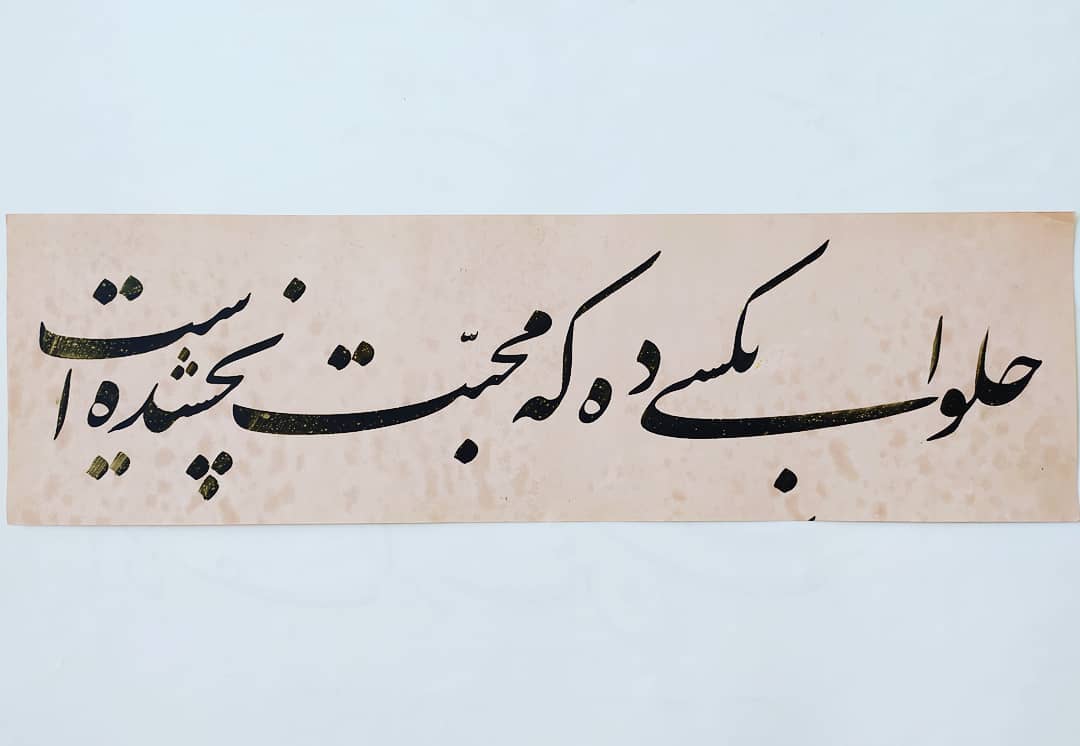 حلوا بکسی ده که محبّت نچشیده است